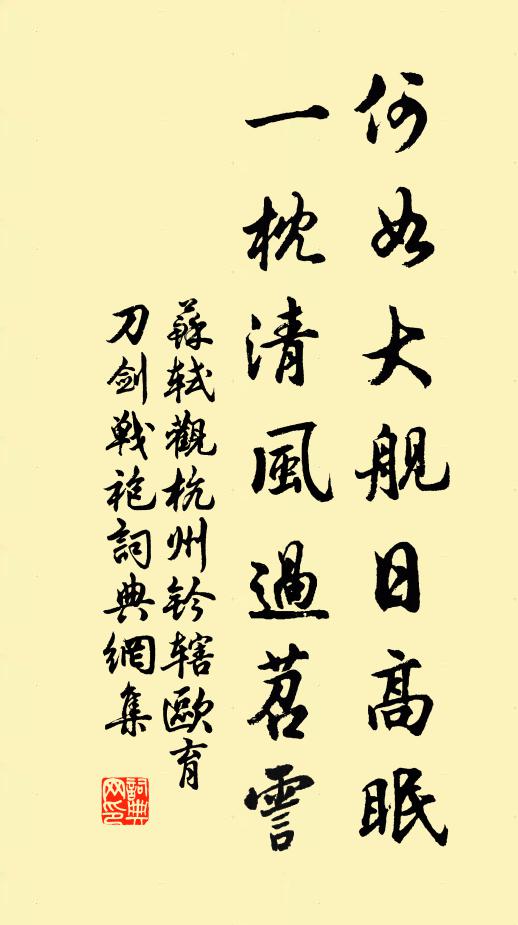 何如大舰日高眠
一枕清風過苕霅
蘇轼觀杭州钤辖歐育
刀劍戰袍詞典網集
詞典网印